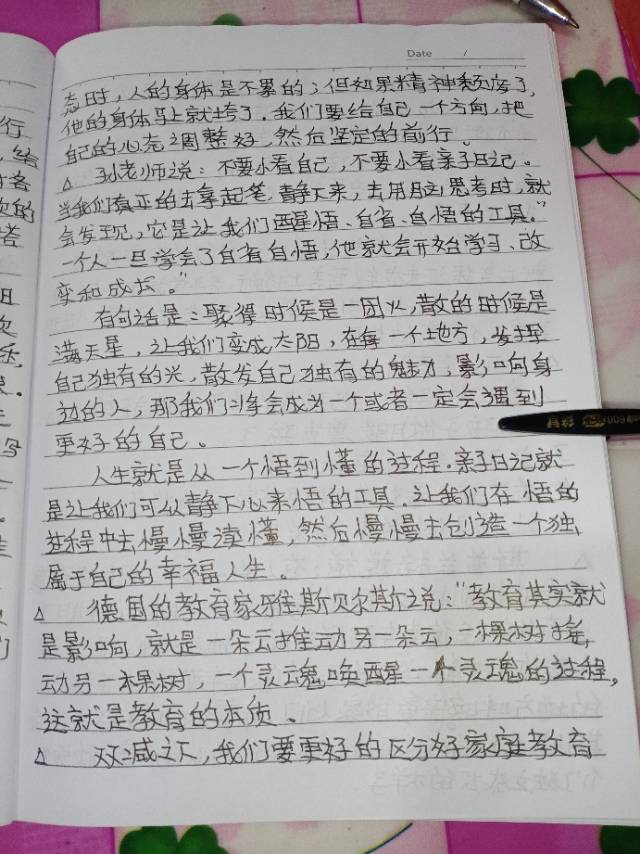 Date /
态时，人的身体是不累的；但如果精神颓废了，
他的身体马上就垮了。我们要给自己一个方向，把
自己的心态调整好，然后坚定的前行。
△ 孙老师说：不要小看自己，不要小看亲子日记。
当我们真正的去拿起笔，静下来，去用脑思考时，就
会发现，它是让我们醒悟、自省、自悟的工具。"
一个人一旦学会了自省自悟，他就会开始学习、改
变和成长。"
有句话是：聚得时候是一团火，散的时候是
满天星，让我们变成太阳，在每一个地方，发挥
自己独有的光，散发自己独有的魅力，影响身
边的人，那我们将会成为一个或者一定会遇到
更好的自己。
人生就是从一个悟到懂的过程。亲子日记就
是让我们可以静下心来悟的工具。让我们在悟的
过程中去慢慢读懂，然后慢慢去创造一个独
属于自己的幸福人生。
△ 德国的教育家雅斯贝尔斯说："教育其实就
是影响，就是一朵云推动另一朵云，一棵树摇
动另一棵树，一个灵魂唤醒一个灵魂的过程，
这就是教育的本质。
△ 双减之下，我们要更好的区分好家庭教育